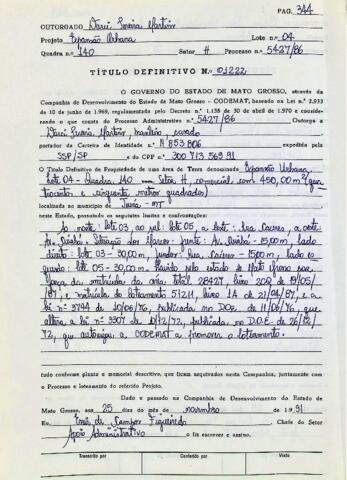 PAG. 344
OUTORGADO Darci Pereira Martins
Projeto Expansão Urbana Lote n.º 04
Quadra n.º 140 Setor H Processo n.º 5427/86
TÍTULO DEFINITIVO N.º 01222
O GOVERNO DO ESTADO DE MATO GROSSO, através da
Companhia de Desenvolvimento do Estado de Mato Grosso - CODEMAT, baseado na Lei n.º 2.933
de 10 de junho de 1.969, regulamentada pelo Decreto n.º 1.138 de 30 de abril de 1.970 e considerando
o que consta do Processo Administrativo n.º 5427/86 Outorga a
Darci Martins, brasileiro, casado
portador da Carteira de Identidade n.º 853806 expedida pela
SSP/SP e do CPF n.º 300 713 569 91
O Título Definitivo de Propriedade de uma área de Terra denominada Expansão Urbana,
Lote 04 - Quadra 140 - Setor H, comercial com 450,00 m² (qua
trocentos e cinquenta metros quadrados)
localizada no município de Juína - MT
neste Estado, possuindo os seguintes limites e confrontações:
Ao norte: lote 03, ao sul: lote 05, a leste: Rua Cáceres, a oeste:
Av. Situação dos Marcos: frente: Av. - 15,00 m, lado
direito: lote 03 - 30,00 m, fundos: Rua Cáceres - 15,00 m, lado es
querdo: lote 05 - 30,00 m. Havido pelo estado de Mato Grosso por
força das matrícula da área total 28427, livro 2 de 19/05/
87, e matrícula do loteamento 51211, livro 1A de 21/09/87, e a
lei nº 3744 de 10/06/76, publicada no DOE de 11/06/76, que
altera a lei nº 3307 de 18/12/72, publicada no D.O.E. de 26/12/
72, que autorizou a CODEMAT a promover o loteamento.
tudo conforme planta e memorial descritivo, que ficam arquivados nesta Companhia, juntamente com
o Processo e loteamento do referido Projeto.
Dado e passado na Companhia de Desenvolvimento do Estado de
Mato Grosso, aos 25 dias do mês de novembro de 1.991
Eu, de Campos Figueiredo Chefe do Setor
Apoio Administrativo o fiz escrever e assino.
Transcrito por Conferido por Visto